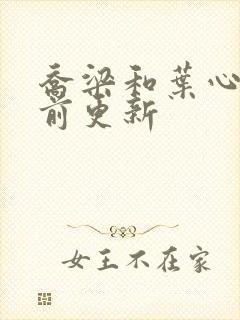 乔梁和叶心
前更新
女王不在家